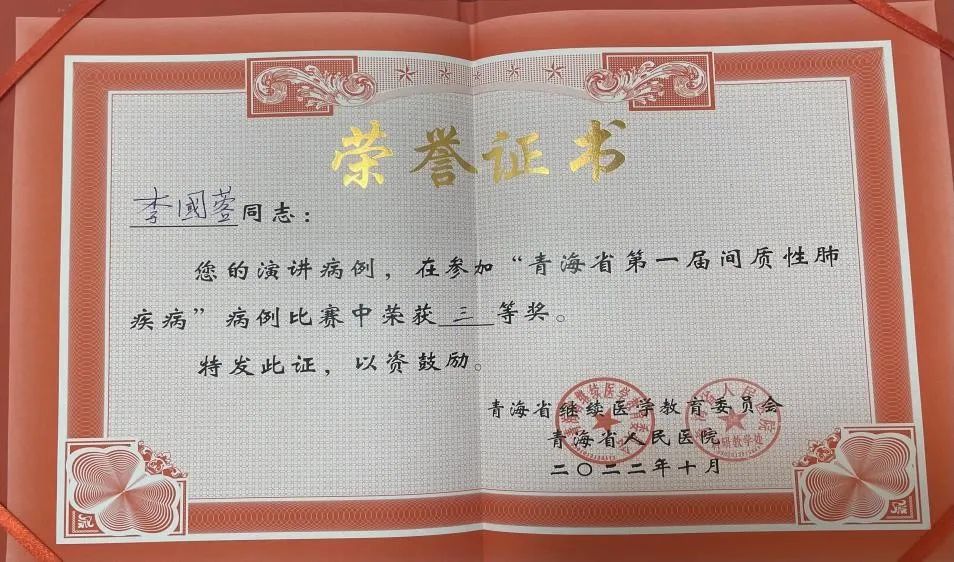 荣誉证书
李國蓉同志：
您的演讲病例，在参加“青海省第一届间质性肺
疾病”病例比赛中荣获三等奖。
特发此证，以资鼓励。
青海省继续医学教育委员会
青海省人民医院
二〇二二年十月